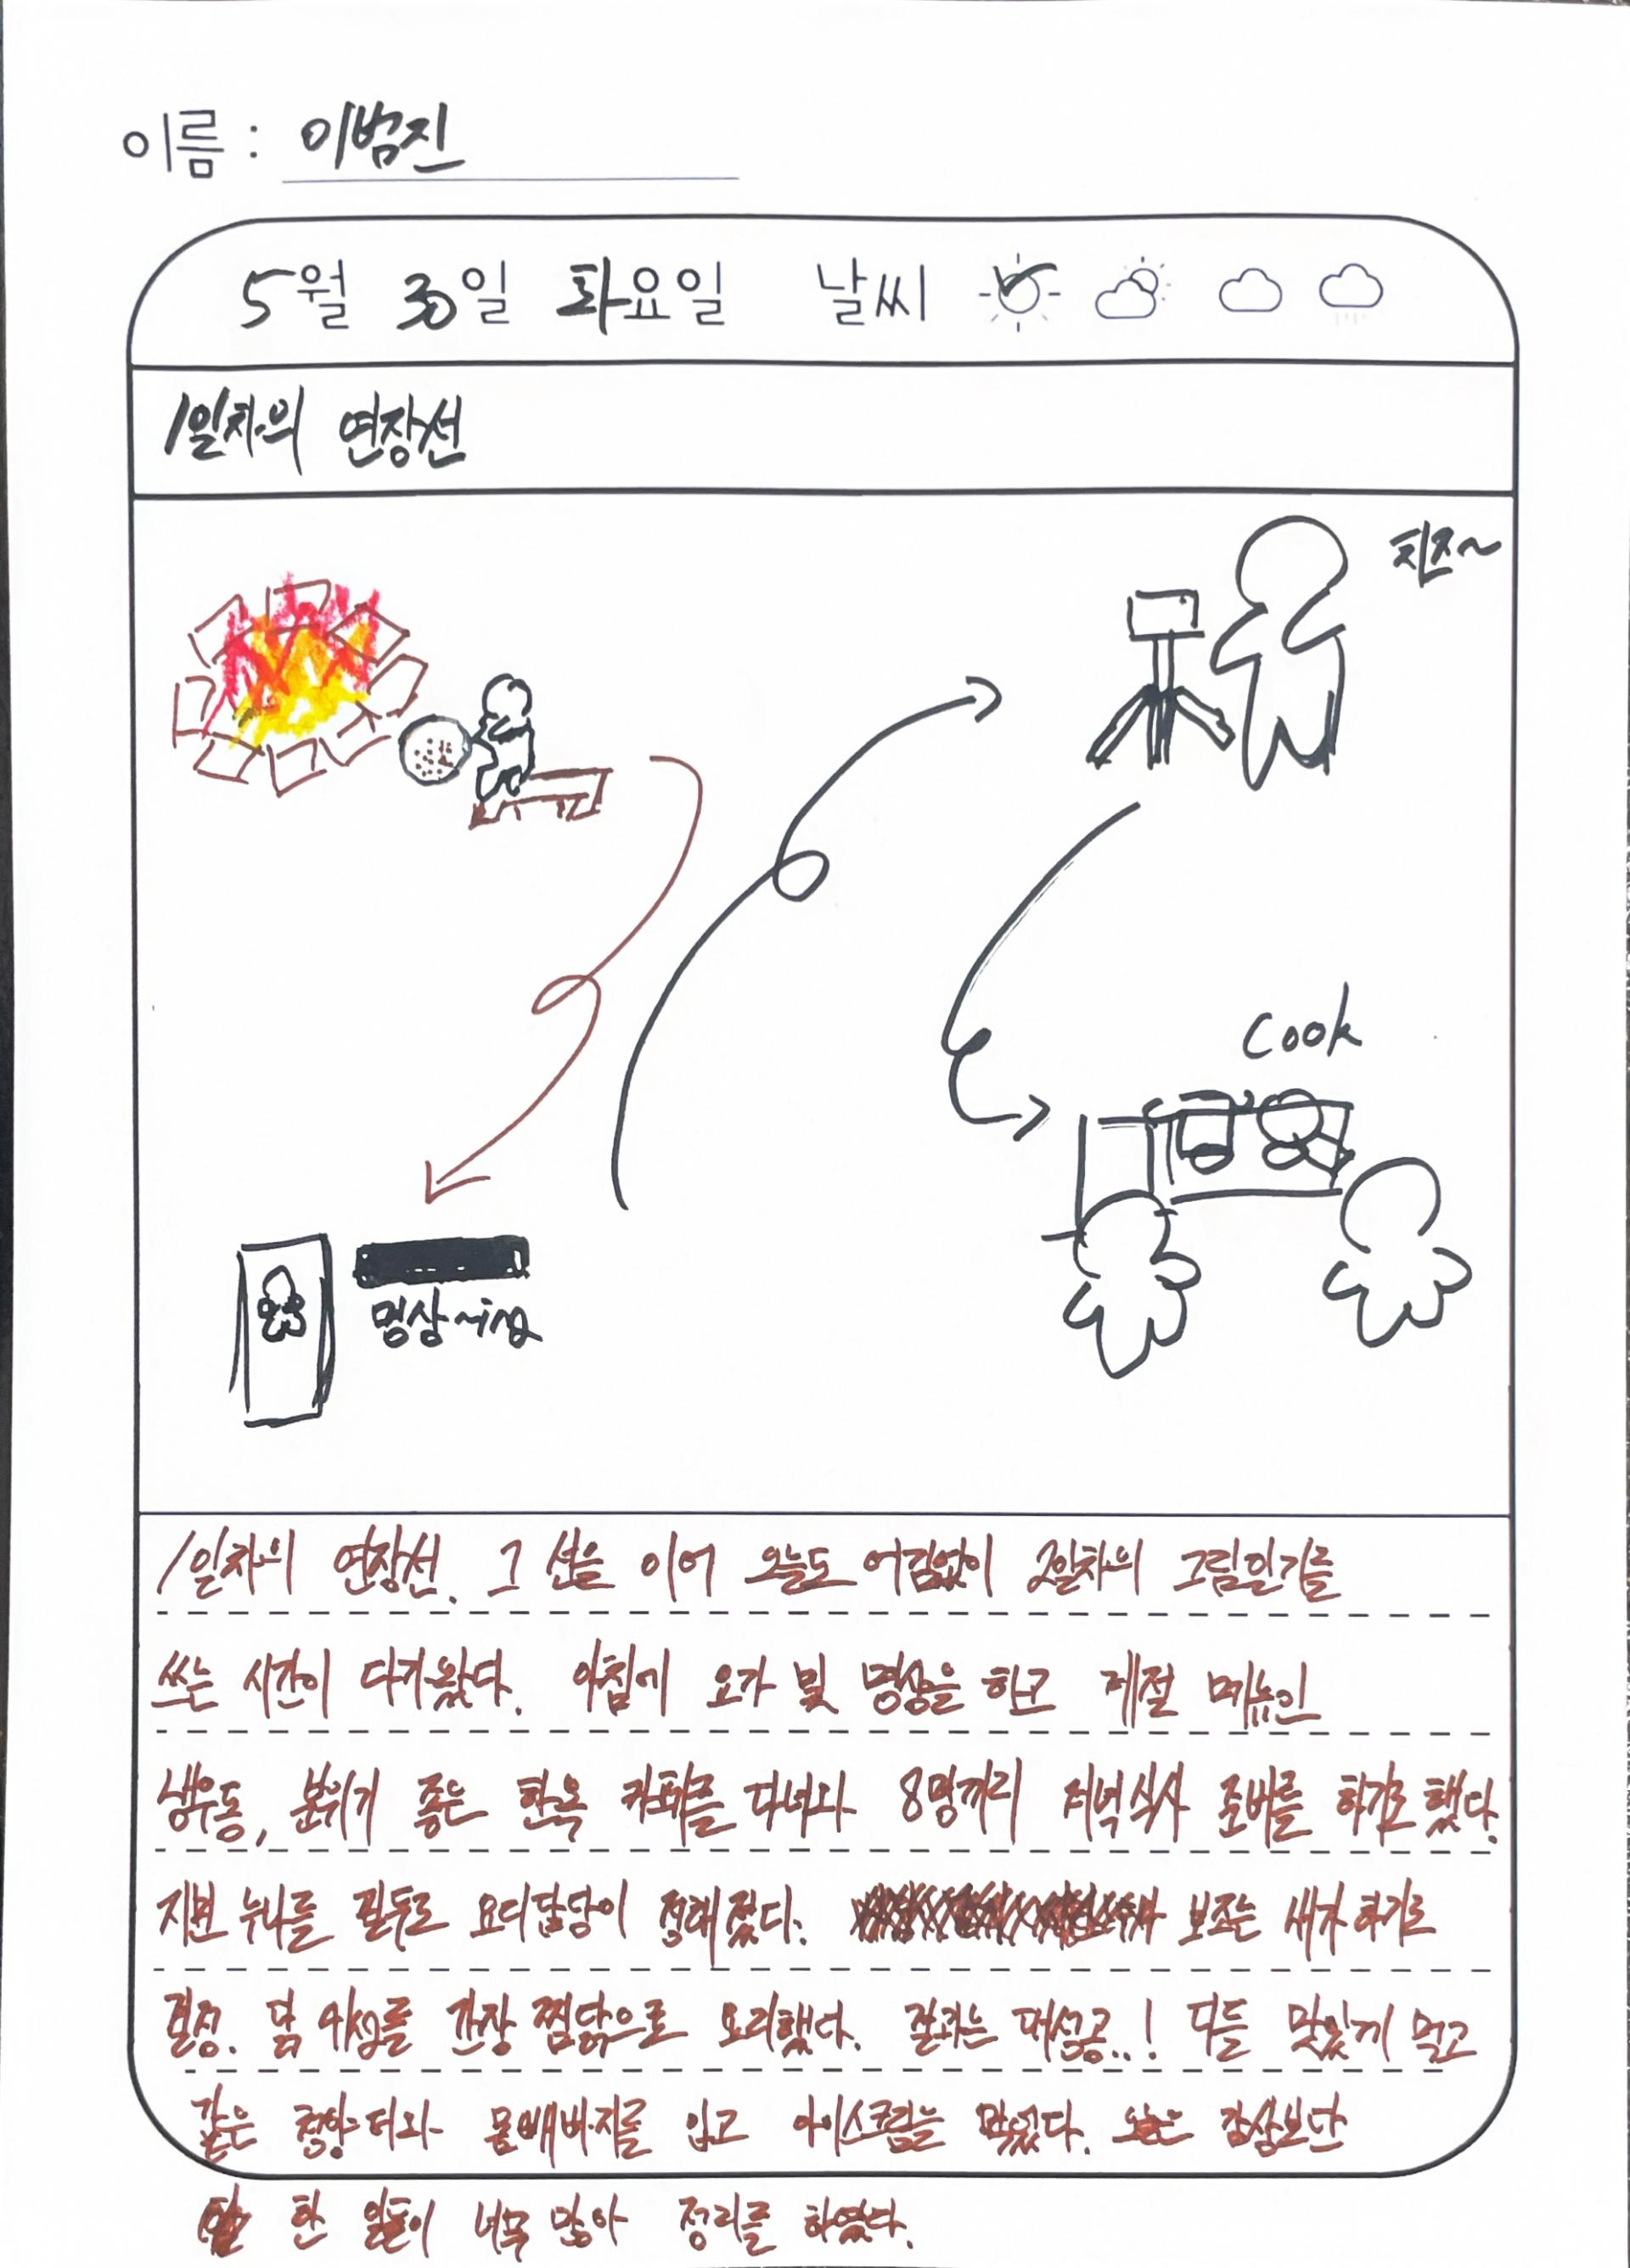 이름 : 이범진
5월 30일 화요일 날씨
1일차의 연장선
치즈~
Cook
명상~ing
1일차의 연장선. 그 선을 이어 오늘도 어김없이 2일차의 그림일기를
쓰는 시간이 다가왔다. 아침에 요가 및 명상을 하고 계절 메뉴인
냉우동, 분위기 좋은 한옥 카페를 다녀와 8명끼리 저녁식사 준비를 하기로 했다.
지변 누나를 필두로 요리담당이 정해졌다. 보조는 내가 하기로
결정. 닭 4kg를 간장 찜닭으로 요리했다. 결과는 대성공..! 다들 맛있게 먹고
같은 티와 몸빼바지를 입고 아이스크림을 먹었다. 오늘은 감상보단
한 일들이 너무 많아 정리를 하였다.